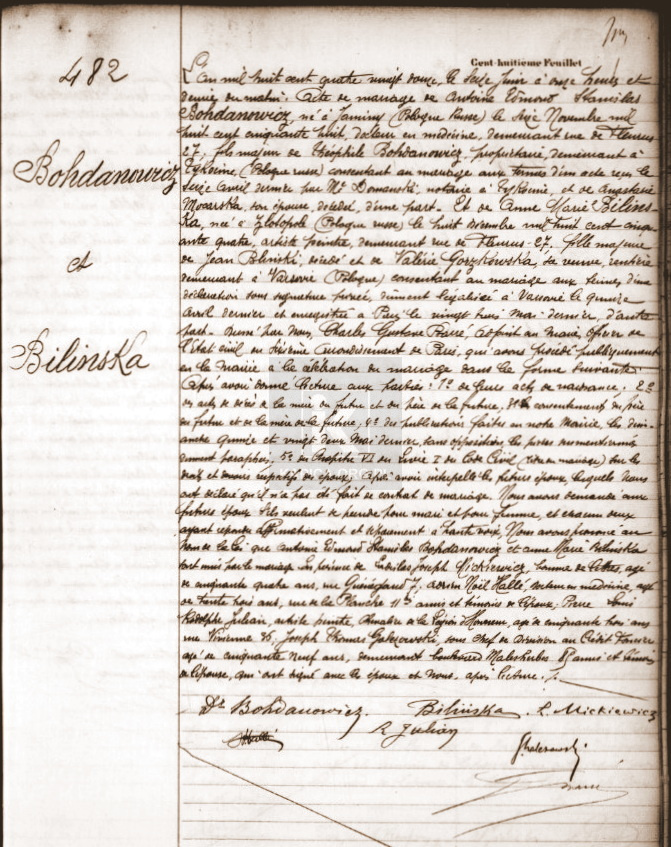 Cent-huitième Feuillet
482
Bohdanowicz
et
Bilinska
L'an mil huit cent quatre vingt douze, le seize Juin à onze heures et
demie du matin. Acte de mariage de Antoine Edmond Stanislas
Bohdanowicz, né à (Pologne Russe) le Novembre mil
huit cent cinquante huit, docteur en médecine, demeurant rue de Fleurus
27, fils majeur de Théophile Bohdanowicz, propriétaire, demeurant à
(Pologne russe) consentant au mariage aux termes d'un acte reçu le
seize avril dernier par Me Domanski, notaire à et de
son épouse, décédée, d'une part. Et de Anne Marie Bilins-
ka, née à Zlotopole (Pologne russe) le huit décembre mil huit cent cinqu-
ante quatre, artiste peintre, demeurant rue de Fleurus 27, fille majeure
de Jean Bilinski, décédé et de Valérie Gorzkowska, sa veuve, rentière
demeurant à Varsovie (Pologne) consentant au mariage aux termes d'une
déclaration sous signature privée, dûment légalisée à Varsovie le quinze
avril dernier et enregistrée à Paris le vingt trois Mai dernier, d'autre
part. Dressé par nous, Charles Gustave adjoint au maire, officier de
l'état civil du sixième arrondissement de Paris, qui avons procédé publiquement
en la Mairie à la célébration du mariage dans la forme suivante:
Après avoir donné lecture aux parties: 1° de leurs actes de naissance. 2°
des actes de décès de la mère du futur et du père de la future, 3° du consentement du père
du futur et de la mère de la future, 4° des publications faites en notre Mairie, les dim-
anche quinze et vingt deux Mai dernier, sans opposition, les pièces susmentionnées
dûment paraphées; 5° du Chapitre VI du Livre I du Code Civil (titre du mariage) sur les
droits et devoirs respectifs des époux; Après avoir interpellé les futurs époux, lesquels nous
ont déclaré qu'il n'a pas été fait de contrat de mariage. Nous avons demandé aux
futurs époux s'ils veulent se prendre pour mari et pour femme, et chacun d'eux
ayant répondu affirmativement et séparément à haute voix, Nous avons prononcé au
nom de la loi que Antoine Edmond Stanislas Bohdanowicz et Anne Marie Bilinska
sont unis par le mariage. En présence de Ladislas Joseph Mickiewicz, homme de lettres, âgé
de cinquante quatre ans, rue Guénégaud 7, Adrien Noël Hallé, docteur en médecine, âgé
de trente trois ans, rue de la Planche 11 bis amis et témoins de l'époux; Pierre Louis
Rodolphe Julian, artiste peintre, Chevalier de la Légion d'Honneur, âgé de cinquante trois ans
rue Vivienne 36, Joseph Thomas sous chef de division au Crédit Foncier
âgé de cinquante neuf ans, demeurant boulevard Malesherbes amis et témoins
de l'épouse, qui ont signé avec les époux et nous, après lecture.
Dr Bohdanowicz. Bilinska L. Mickiewicz
R Julian